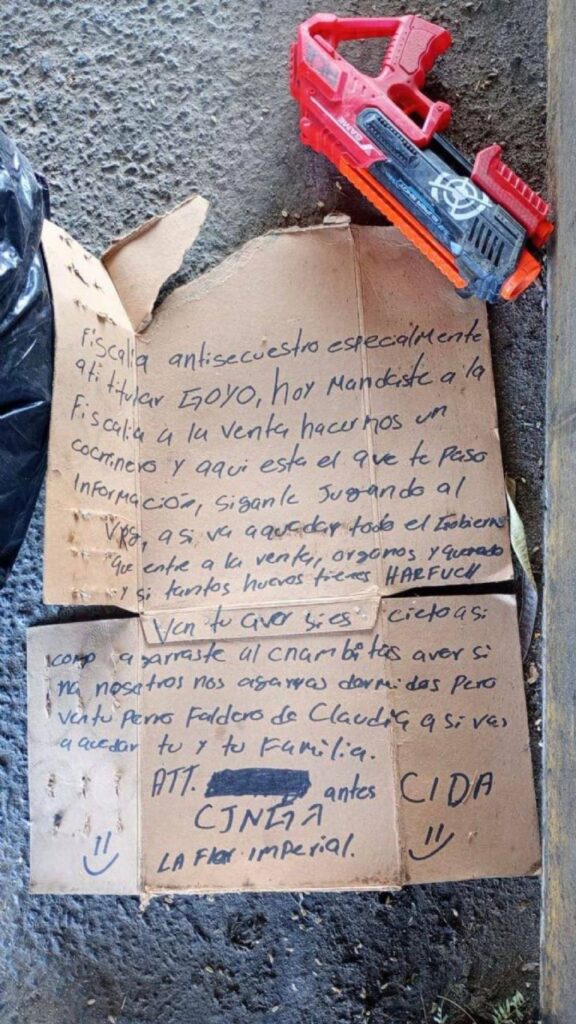 GAME
Fiscalia antisecuestro especialmente
ati titular GOYO, hoy Mandaste a la
Fiscalia a la venta hacernos un
cocrinero y aqui esta el que te paso
información, siganle Jugando al
VRg, asi va aquedar todo el Gobierno
que entre a la venta, organos y
y si tantos huevos tienes HARFUCH
Ven tu aver si es cieto asi
como agarraste al chambitas aver si
na nosotros nos agarras dormidos Pero
ven tu Perro Faldero de Claudia asi vas
aquedar tu y tu Familia.
ATT. antes CIDA
CJNGA
LA Flor imperial.